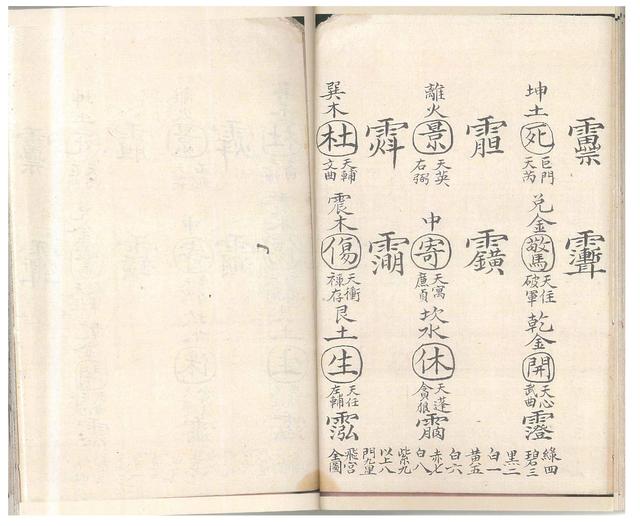 坤土
死
巨門
天芮
兌金
驚
天住
破軍
乾金
開
天心
武曲
離火
景
天英
右弼
中
寄
廉貞
坎水
休
天蓬
貪狼
巽木
杜
天輔
文曲
震木
傷
天衝
祿存
艮土
生
天任
左輔
綠四
碧三
黑二
白一
黃五
白六
赤七
白八
紫九
以上八
門九星
飛宮
全圖